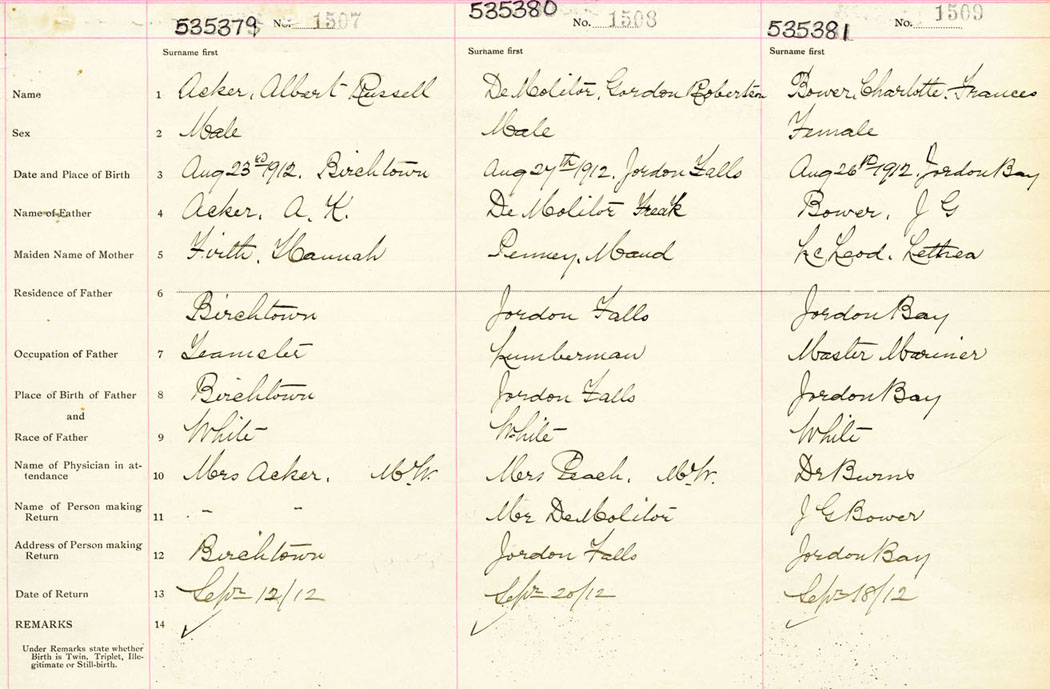 535379 No. 1507 535380 No. 1508 535381 No. 1509
Surname first Surname first Surname first
Name 1 Acker, Albert Russell DeMolitor, Gordon Roberton Bower, Charlotte Frances
Sex 2 Male Male Female
Date and Place of Birth 3 Aug 23rd 1912. Birchtown Aug 27th 1912. Jordon Falls Aug 26th 1912. Jordon Bay
Name of Father 4 Acker, A. K. DeMolitor Freak Bower, J G
Maiden Name of Mother 5 Firth, Hannah Penney, Maud McLeod. Lethea
Residence of Father 6
Birchtown Jordon Falls Jordon Bay
Occupation of Father 7 Teamster Lumberman Master Mariner
Place of Birth of Father 8 Birchtown Jordon Falls Jordon Bay
and
Race of Father 9 White White White
Name of Physician in at-
tendance 10 Mrs Acker. M.W. Mrs Peach. M.W. Dr Burns
Name of Person making
Return 11 " " Mr DeMolitor J G Bower
Address of Person making
Return 12 Birchtown Jordon Falls Jordon Bay
Date of Return 13 Sepr 12/12 Sepr 20/12 Sepr 18/12
REMARKS 14 ✓ ✓ ✓
Under Remarks state whether
Birth is Twin, Triplet, Ille-
gitimate or Still-birth.